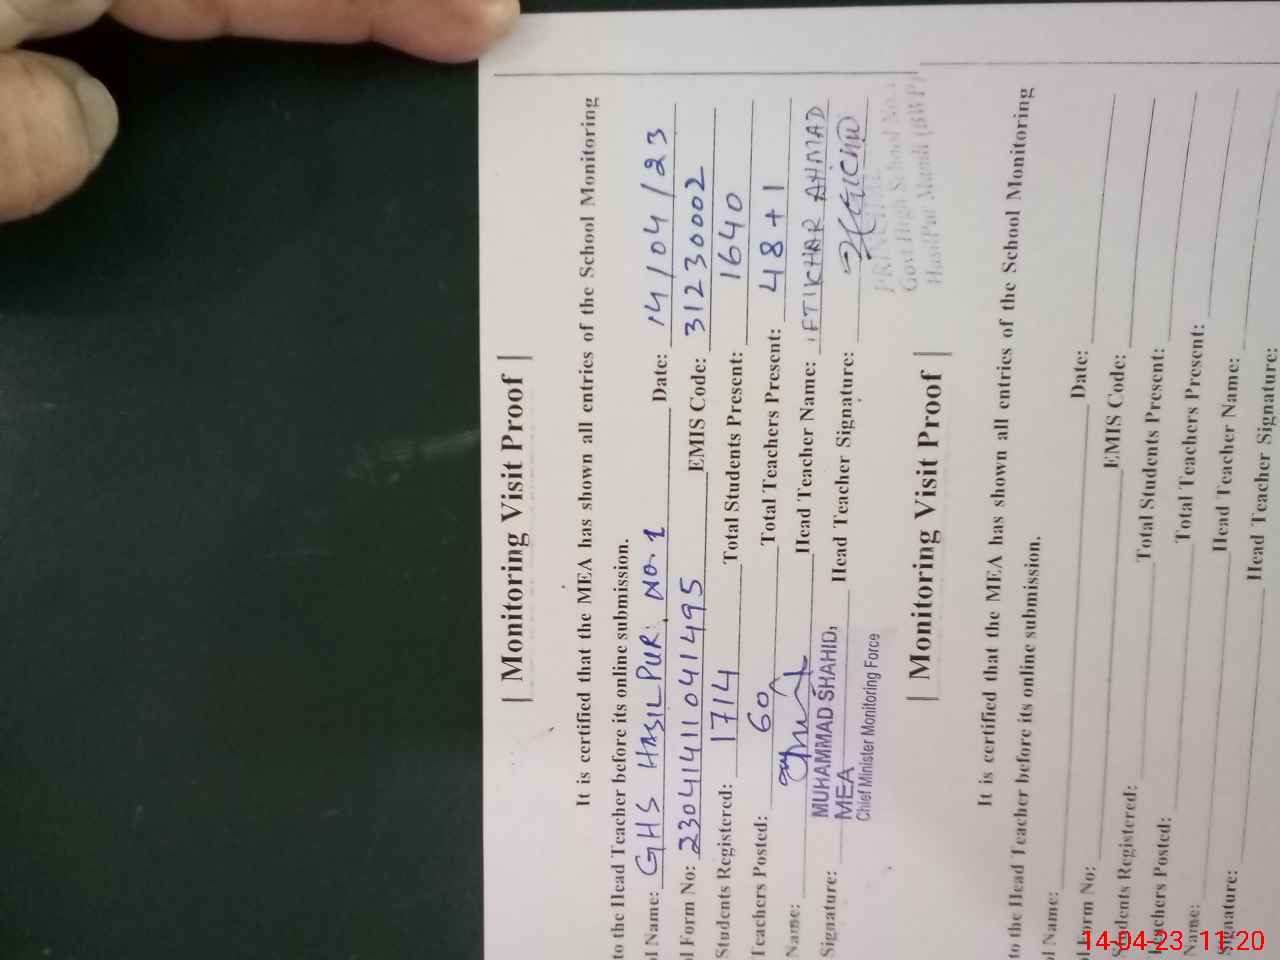 Monitoring Visit Proof
It is certified that the MEA has shown all entries of the School Monitoring
to the Head Teacher before its online submission.
l Name: GHS HASILPUR NO.1 Date: 14/04/23
l Form No: 23041411041495 EMIS Code: 31230002
Students Registered: 1714 Total Students Present: 1640
Teachers Posted: 60 Total Teachers Present: 48+1
Name: Head Teacher Name: IFTIKHAR AHMAD
MUHAMMAD SHAHID,
Signature: MEA Head Teacher Signature:
Chief Minister Monitoring Force
PRINCIPAL
Govt.High School No.1
HasilPur Mandi (BWP)
Monitoring Visit Proof
It is certified that the MEA has shown all entries of the School Monitoring
to the Head Teacher before its online submission.
l Name: Date:
l Form No: EMIS Code:
Students Registered: Total Students Present:
Teachers Posted: Total Teachers Present:
Name: Head Teacher Name:
Signature: Head Teacher Signature:
14-04-23 11:20